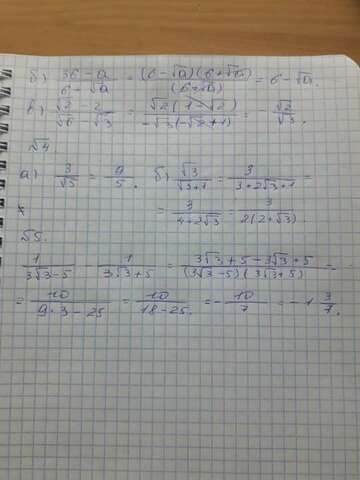 б) (36 - a)/(6 + √a) = ((6 - √a)(6 + √a))/(6 + √a) = 6 - √a.
в) (√2 - 2)/(√6 - √3) = (√2(1 - √2))/(-√3(-√2 + 1)) = - √2/√3.
√4.
а) 3/√5 = 9/5. б) √3/(√3 + 1) = 3/(3 + 2√3 + 1) =
= 3/(4 + 2√3) = 3/(2(2 + √3)).
√5.
1/(3√3 - 5) 1/(3√3 + 5) = (3√3 + 5 - 3√3 + 5)/((3√3 - 5)(3√3 + 5)) =
= 10/(9·3 - 25) = 10/(18 - 25) = - 10/7 = -1 3/7.